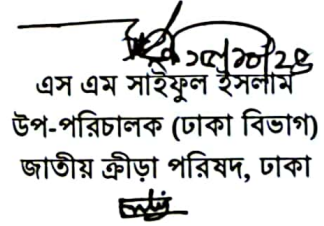 এস এম সাইফুল ইসলাম
উপ-পরিচালক (ঢাকা বিভাগ)
জাতীয় ক্রীড়া পরিষদ, ঢাকা